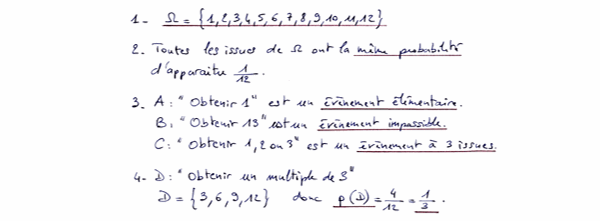 1- Ω = {1,2,3,4,5,6,7,8,9,10,11,12}
2. Toutes les issues de Ω ont la même probabilité
d'apparaître 1/12.
3. A: "Obtenir 1" est un évènement élémentaire.
B: "Obtenir 13" est un évènement impossible.
C: "Obtenir 1, 2 ou 3" est un évènement à 3 issues.
4- D: "Obtenir un multiple de 3"
D = {3,6,9,12} donc p(D) = 4/12 = 1/3.